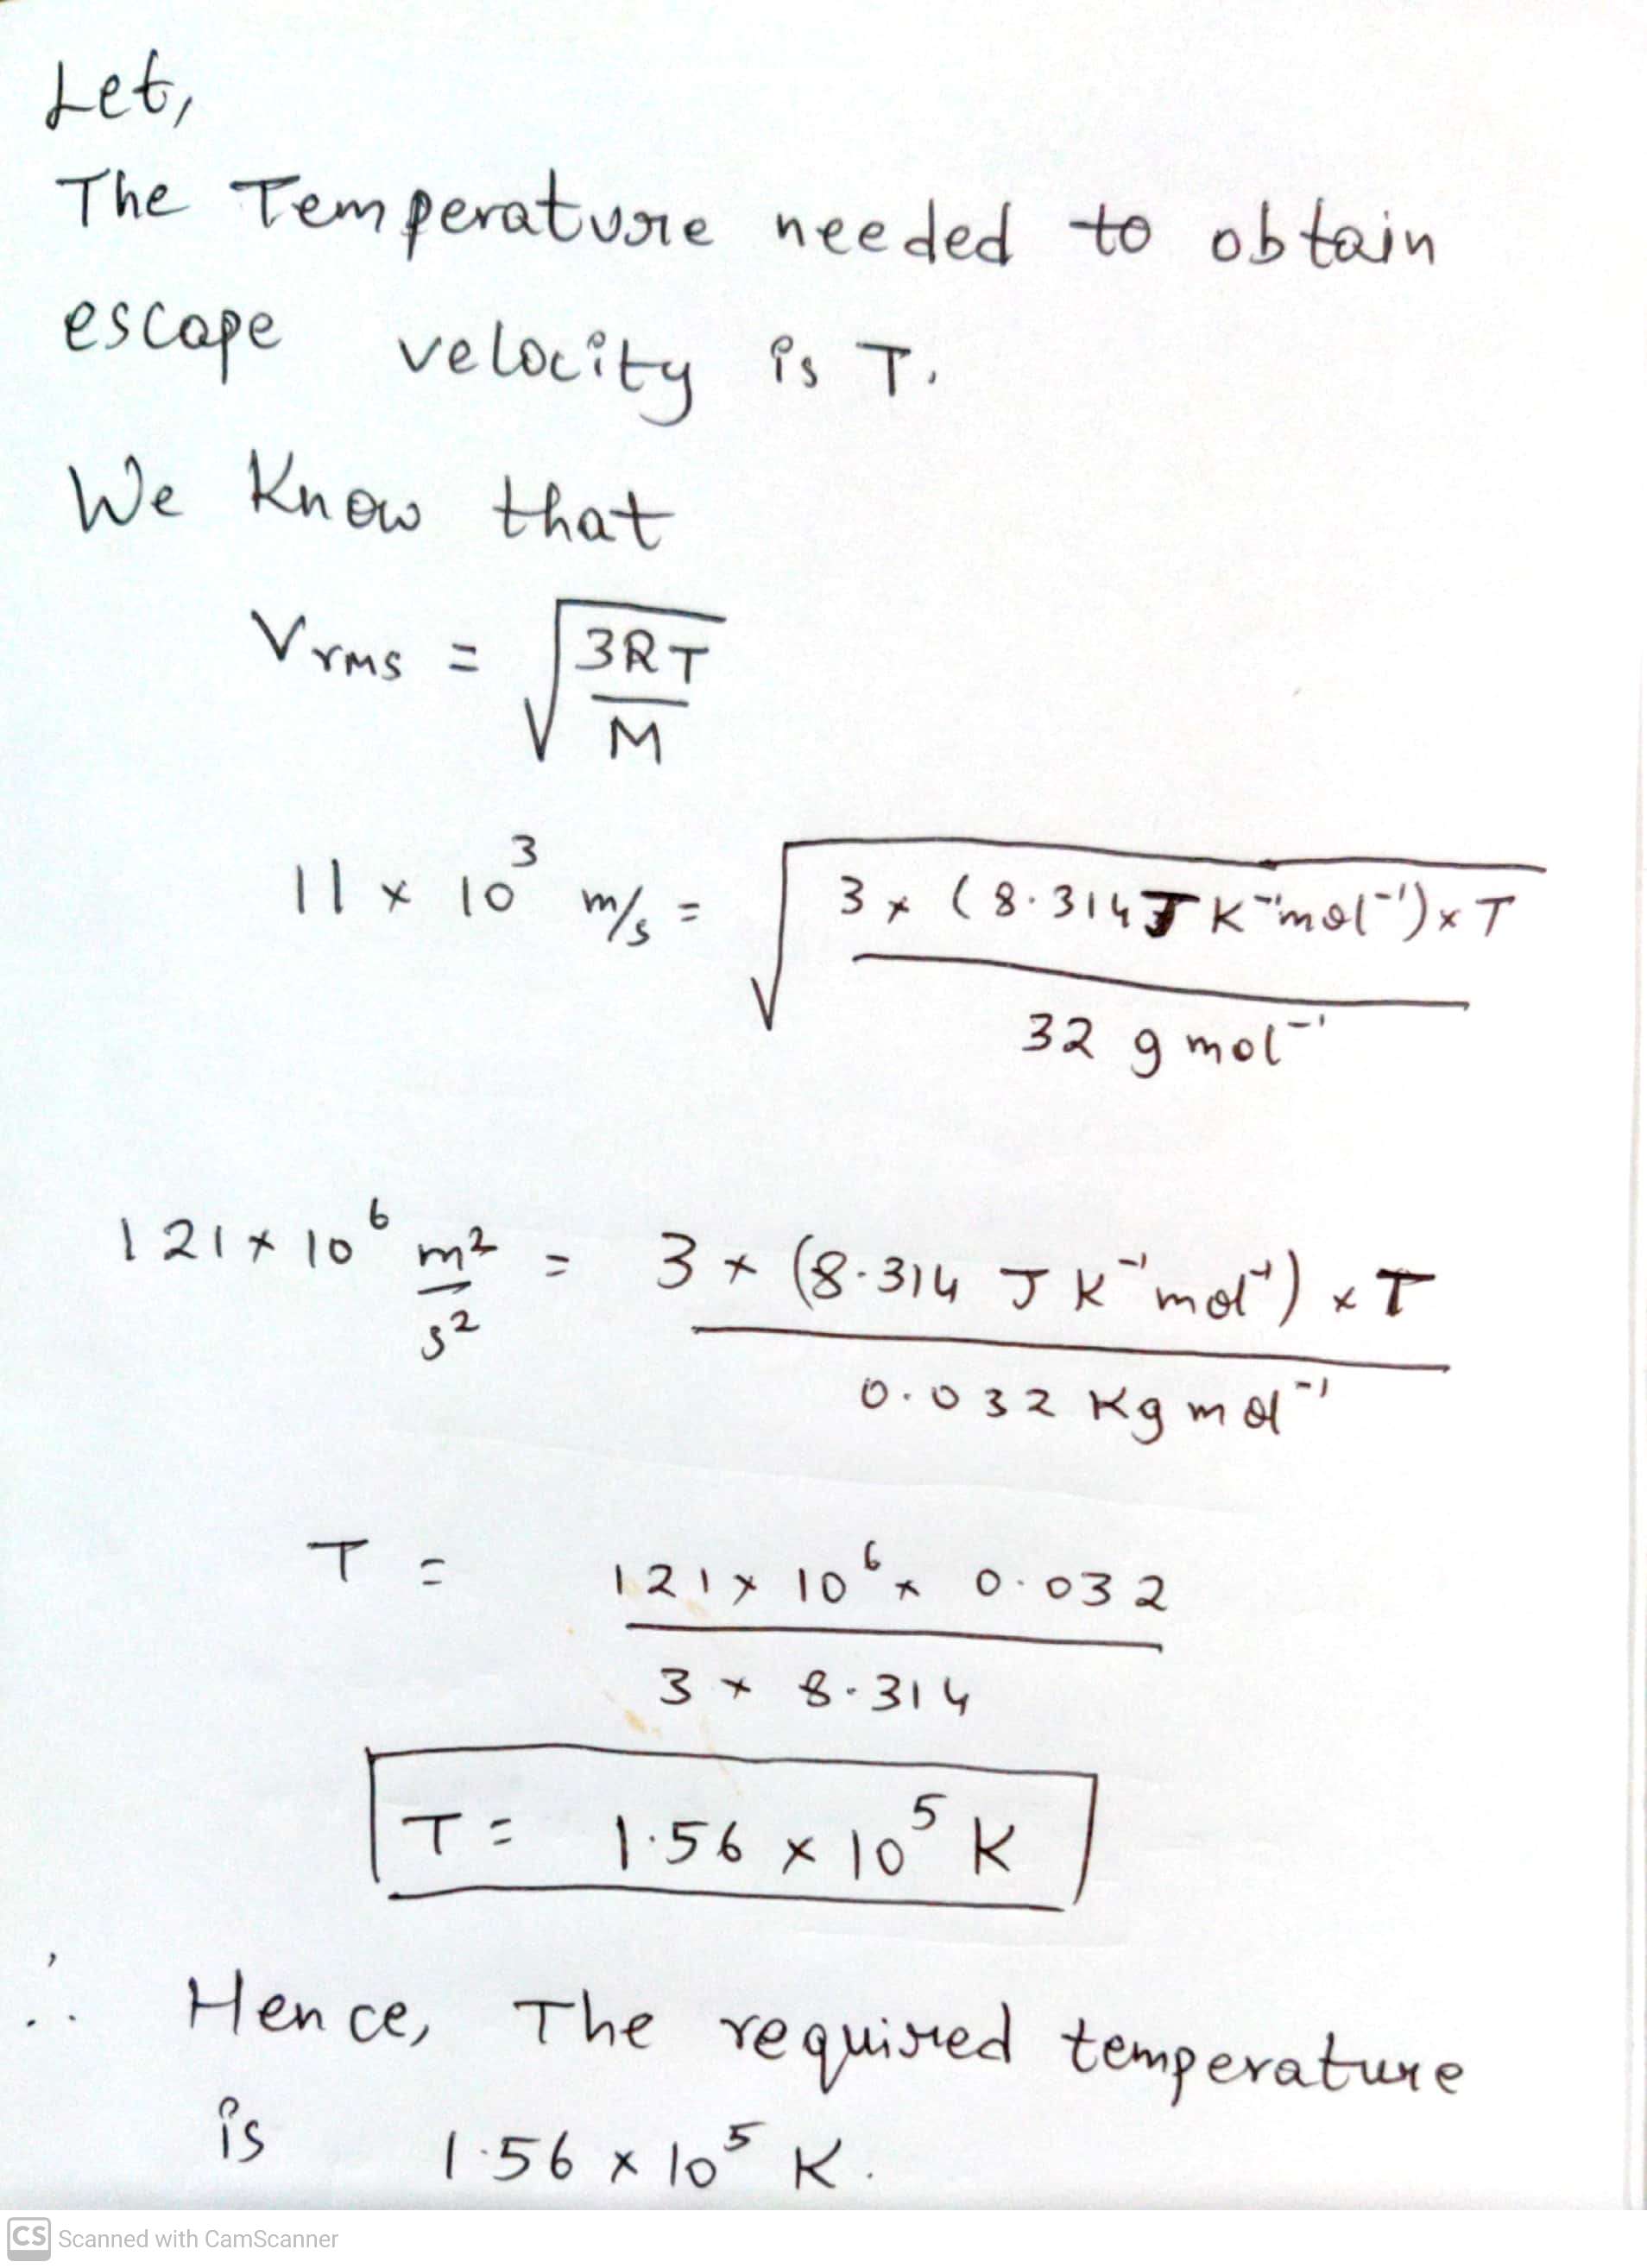 Let,
The Temperature needed to obtain
escape velocity is T.
We Know that
Vrms = √(3RT/M)
11 × 10³ m/s = √(3 × (8.314 J K⁻¹mol⁻¹) × T / 32 g mol⁻¹)
121 × 10⁶ m²/s² = 3 × (8.314 J K⁻¹mol⁻¹) × T / 0.032 Kg mol⁻¹
T = 121 × 10⁶ × 0.032 / 3 × 8.314
T = 1.56 × 10⁵ K
∴ Hence, The required temperature
is 1.56 × 10⁵ K.
CS Scanned with CamScanner